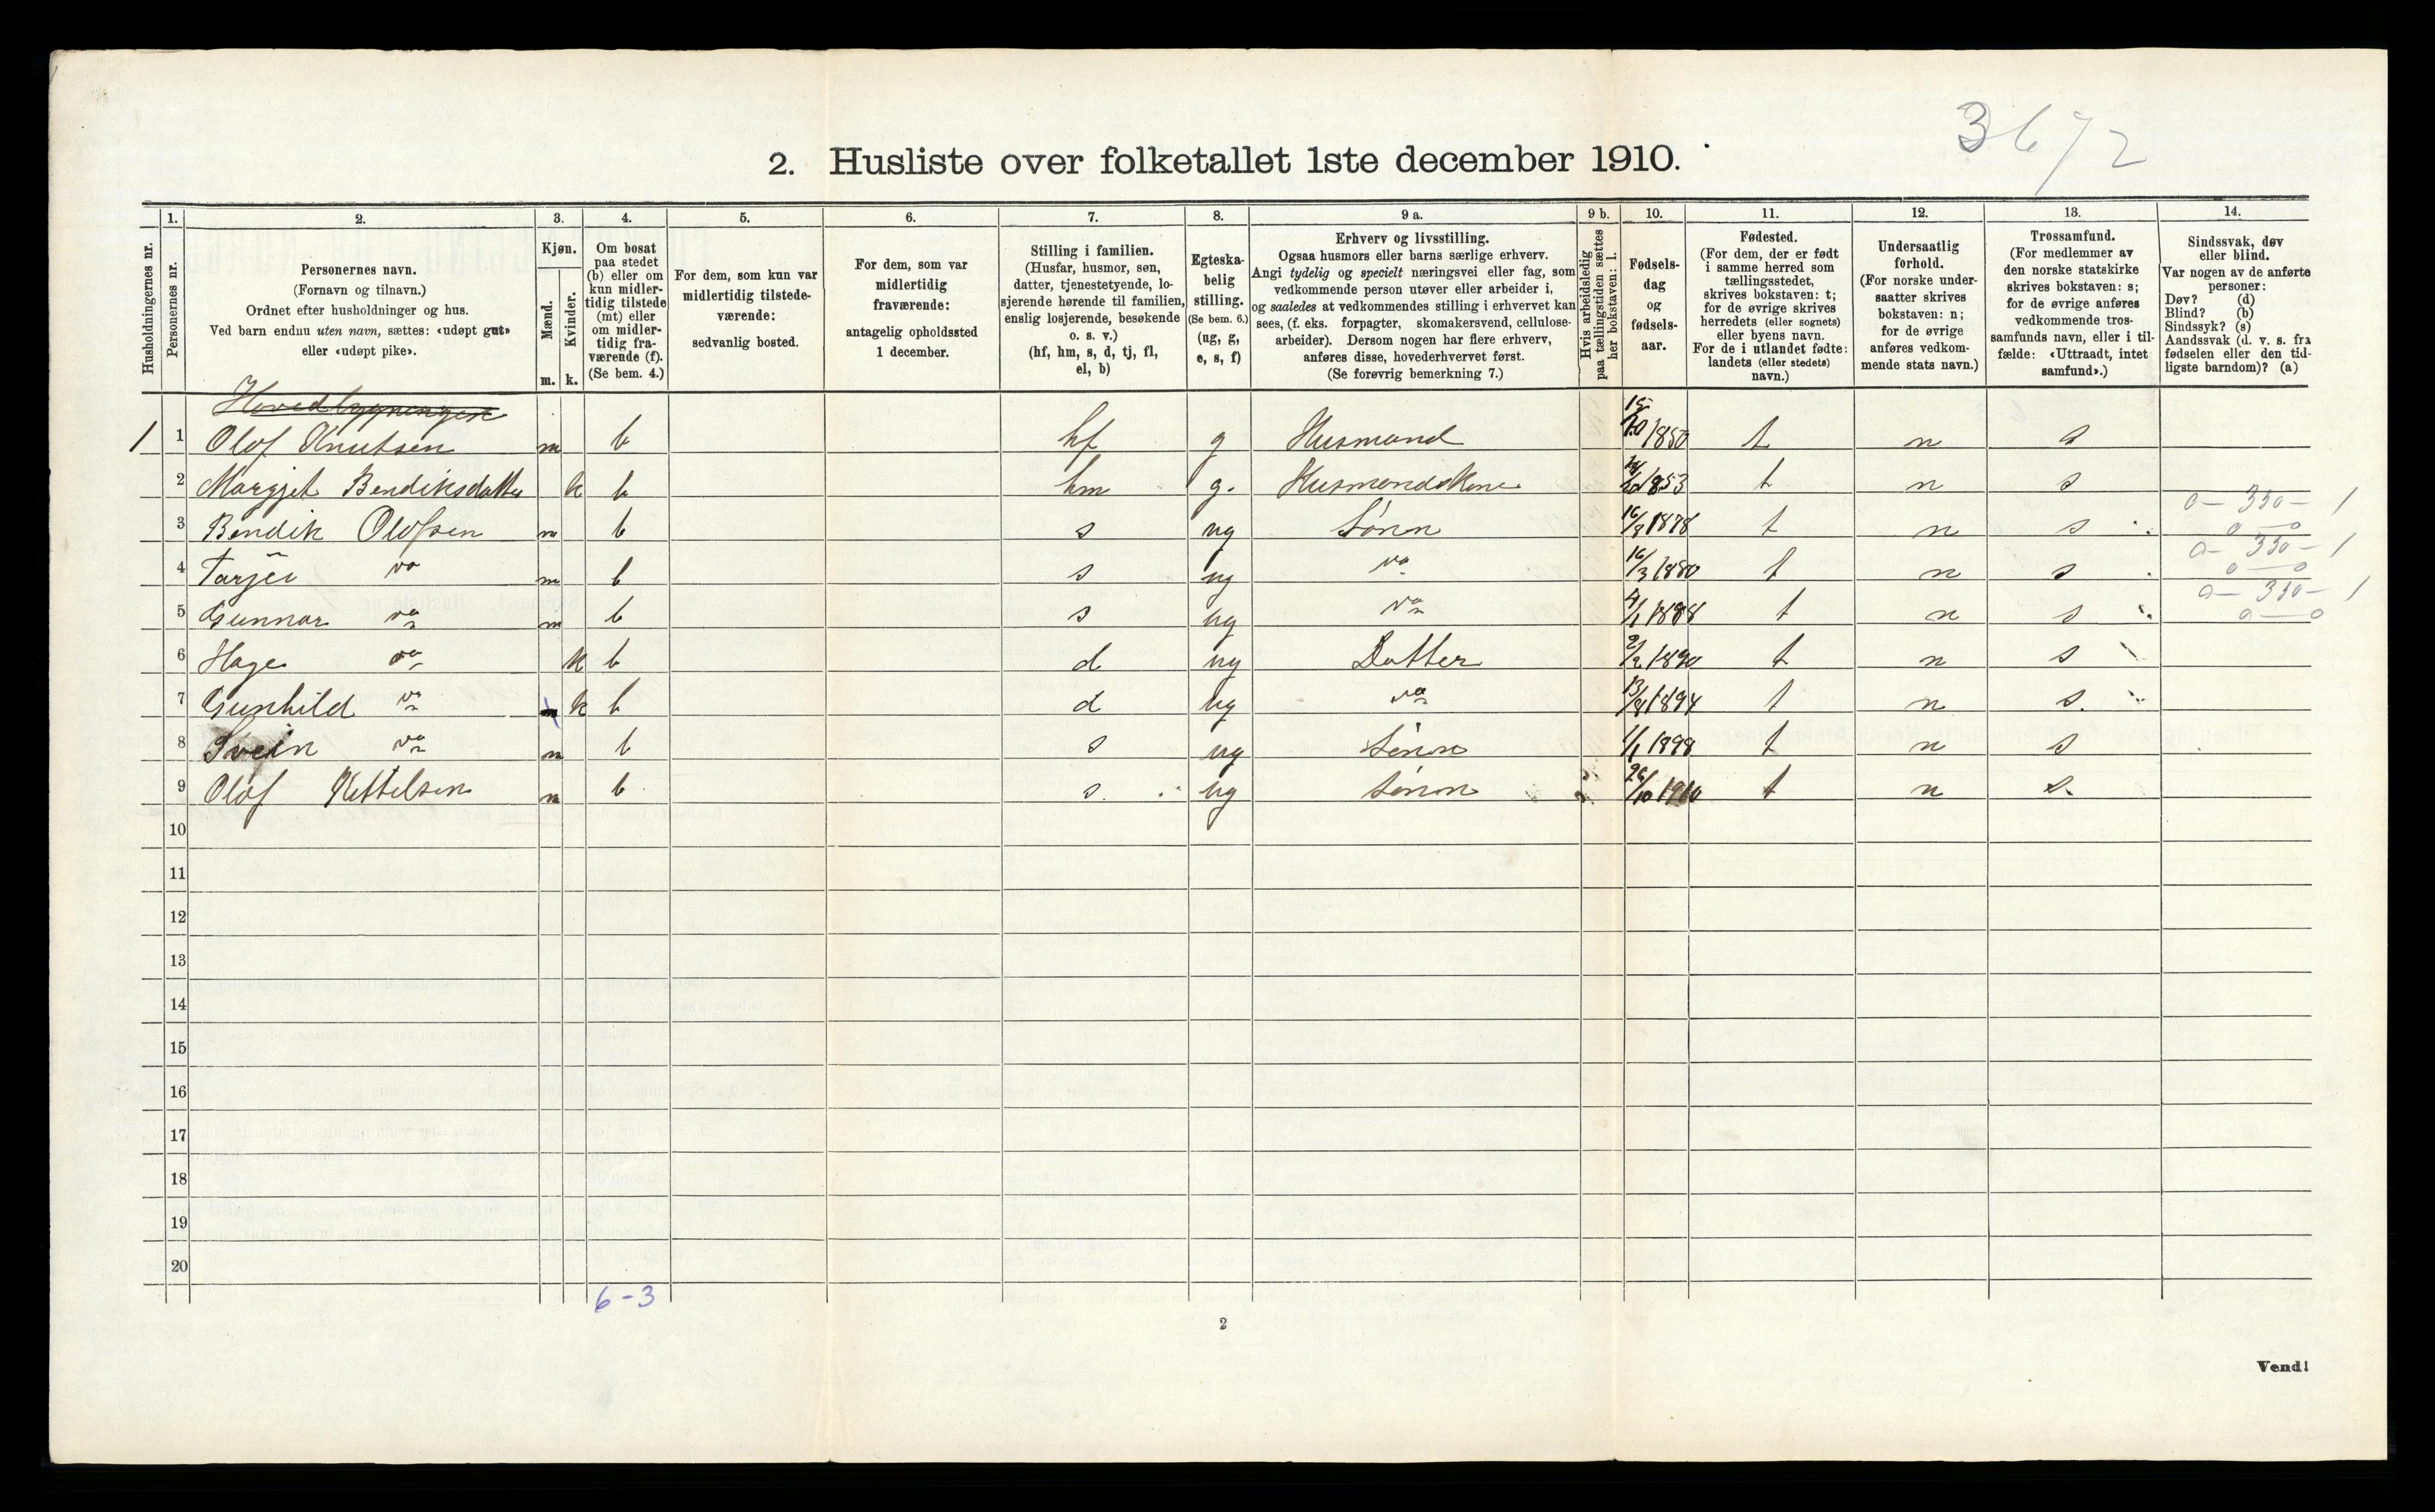 3672
2. Husliste over folketallet 1ste december 1910.
Husholdningernes nr.
1.
Personernes nr.
2.
Personernes navn.
(Fornavn og tilnavn.)
Ordnet efter husholdninger og hus.
Ved barn endnu uten navn, sættes: «udøpt gut»
eller «udøpt pike».
3.
Kjøn.
Mænd.
m.
Kvinder.
k.
4.
Om bosat
paa stedet
(b) eller om
kun midler-
tidig tilstede
(mt) eller
om midler-
tidig fra-
værende (f).
(Se bem. 4.)
5.
For dem, som kun var
midlertidig tilstede-
værende:
sedvanlig bosted.
6.
For dem, som var
midlertidig
fraværende:
antagelig opholdssted
1 december.
7.
Stilling i familien.
(Husfar, husmor, søn,
datter, tjenestetyende, lo-
sjerende hørende til familien,
enslig losjerende, besøkende
o. s. v.)
(hf, hm, s, d, tj, fl,
el, b)
8.
Egteska-
belig
stilling.
(Se bem. 6.)
(ug, g,
e, s, f)
9 a.
Erhverv og livsstilling.
Ogsaa husmors eller barns særlige erhverv.
Angi tydelig og specielt næringsvei eller fag, som
vedkommende person utøver eller arbeider i,
og saaledes at vedkommendes stilling i erhvervet kan
sees, (f. eks. forpagter, skomakersvend, cellulose-
arbeider). Dersom nogen har flere erhverv,
anføres disse, hovederhvervet først.
(Se forøvrig bemerkning 7.)
9 b.
Hvis arbeidsledig
paa tællingstiden sættes
her bokstaven: l.
10.
Fødsels-
dag
og
fødsels-
aar.
11.
Fødested.
(For dem, der er født
i samme herred som
tællingsstedet,
skrives bokstaven: t;
for de øvrige skrives
herredets (eller sognets)
eller byens navn.
For de i utlandet fødte:
landets (eller stedets)
navn.)
12.
Undersaatlig
forhold.
(For norske under-
saatter skrives
bokstaven: n;
for de øvrige
anføres vedkom-
mende stats navn.)
13.
Trossamfund.
(For medlemmer av
den norske statskirke
skrives bokstaven: s;
for de øvrige anføres
vedkommende tros-
samfunds navn, eller i til-
fælde: «Uttraadt, intet
samfund».)
14.
Sindssvak, døv
eller blind.
Var nogen av de anførte
personer:
Døv? (d)
Blind? (b)
Sindssyk? (s)
Aandssvak (d. v. s. fra
fødselen eller den tid-
ligste barndom)? (a)
Hovedbygningen
1 1 Olof Knutsen m b hf g Husmand 1850 t n s
2 Margjet Bendiksdatter k b hm g. Husmandskone 1853 t n s
3 Bendik Olofsen m b s ug Sønn 16/8 1878 t n s
4 Tarjei m b s ug 16/3 1880 t n s
5 Gunnar m b s ug 4/1 1888 t n s
6 Hage k b d ug Datter 2/2 1890 t n s
7 Gunhild k b d ug 13/8 1894 t n s.
8 Svein m b s ug Sønn 1/1 1898 t n s
9 Olof Kettelsen m b s. ug Sønn 26/10 1910 t n s.
10
11
12
13
14
15
16
17
18
19
20
6-3
2
Vend!